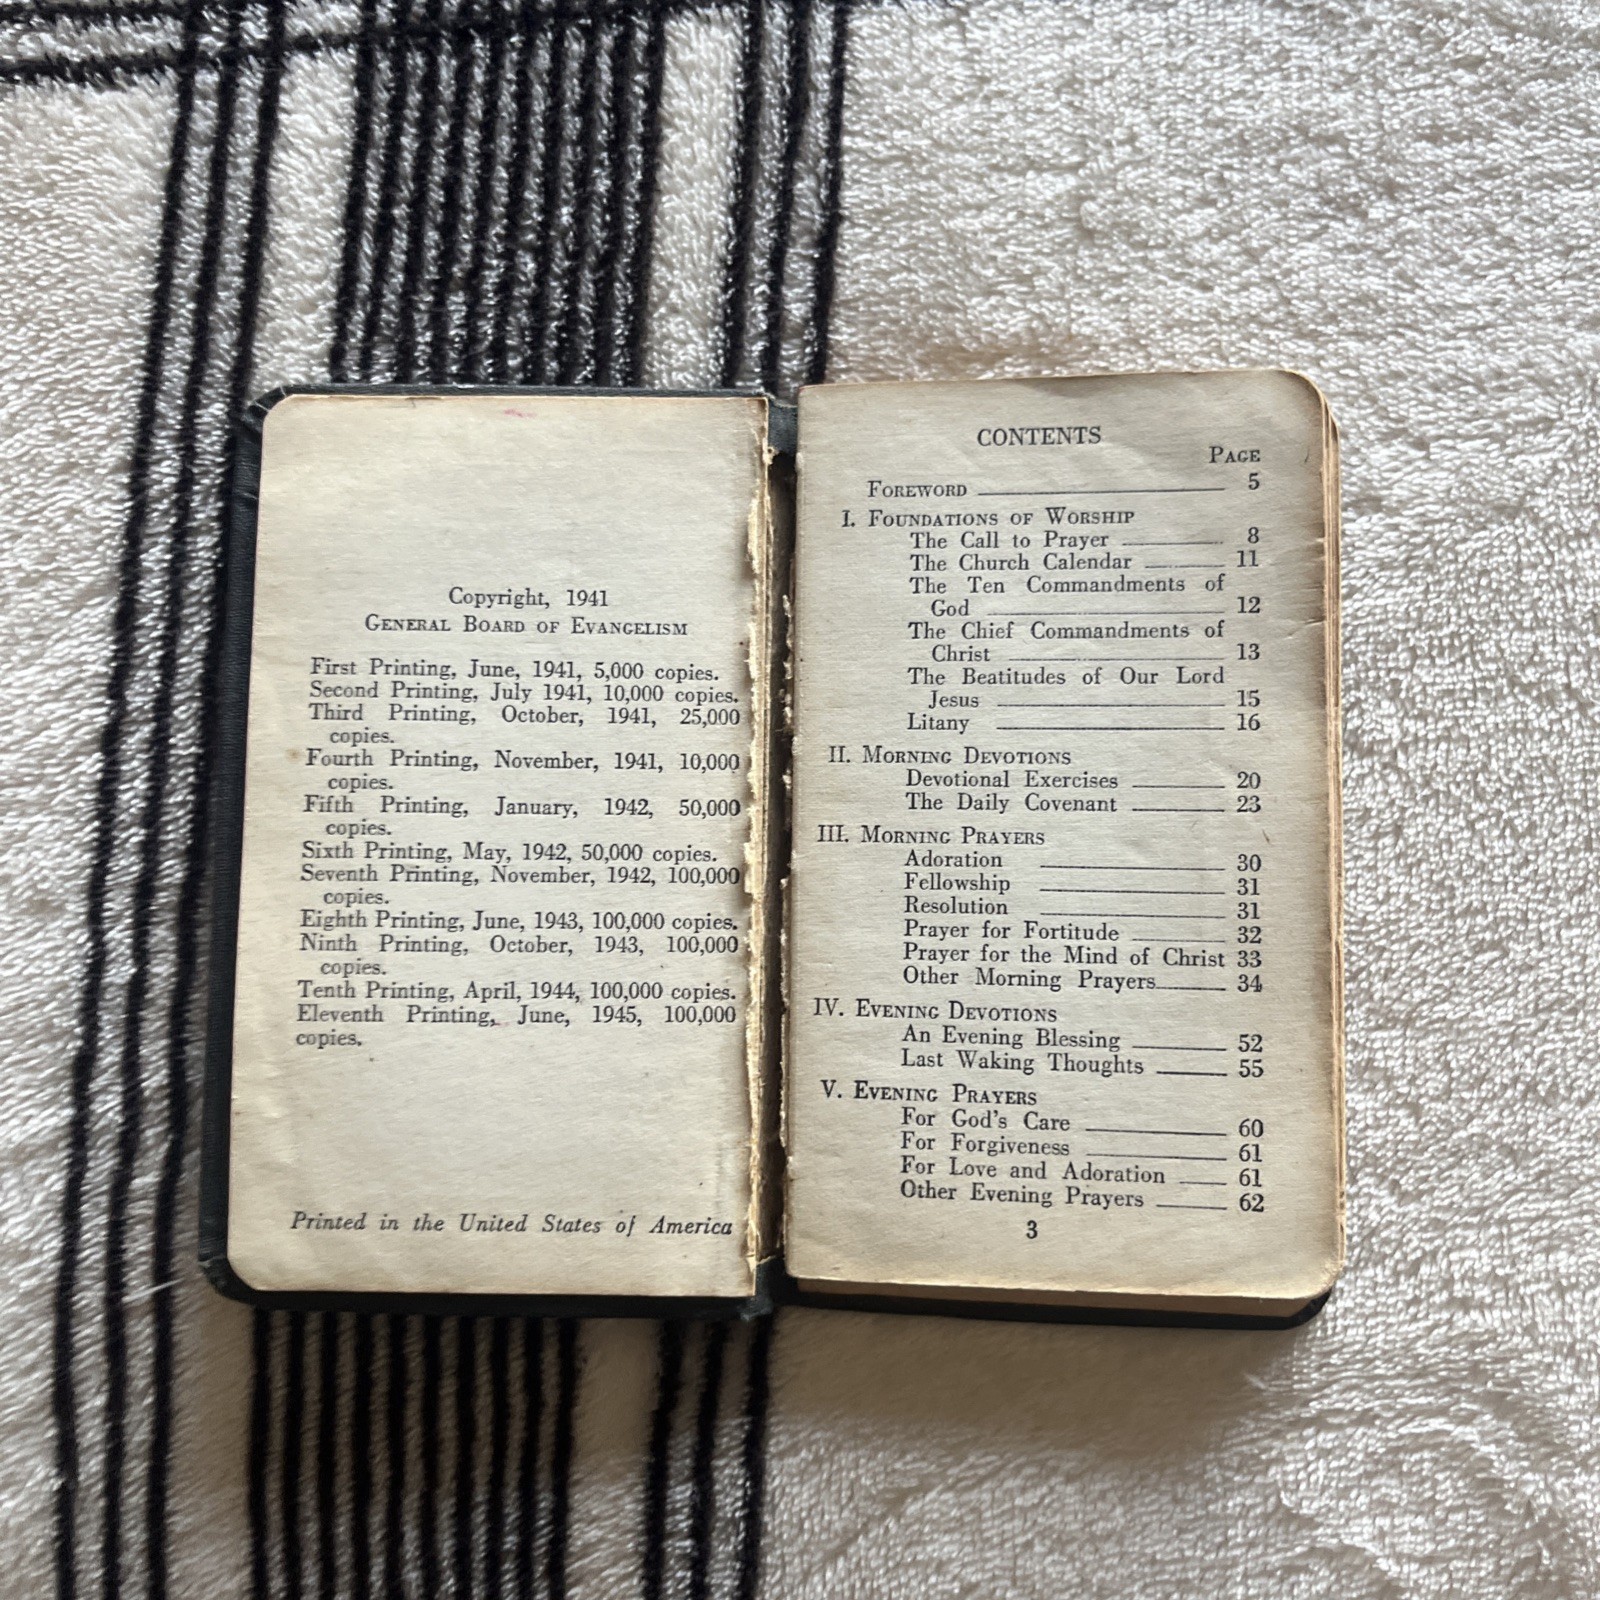 Copyright, 1941
GENERAL BOARD OF EVANGELISM
First Printing, June, 1941, 5,000 copies.
Second Printing, July 1941, 10,000 copies.
Third Printing, October, 1941, 25,000
copies.
Fourth Printing, November, 1941, 10,000
copies.
Fifth Printing, January, 1942, 50,000
copies.
Sixth Printing, May, 1942, 50,000 copies.
Seventh Printing, November, 1942, 100,000
copies.
Eighth Printing, June, 1943, 100,000 copies.
Ninth Printing, October, 1943, 100,000
copies.
Tenth Printing, April, 1944, 100,000 copies.
Eleventh Printing, June, 1945, 100,000
copies.
Printed in the United States of America
CONTENTS
PAGE
FOREWORD 5
I. FOUNDATIONS OF WORSHIP
The Call to Prayer 8
The Church Calendar 11
The Ten Commandments of
God 12
The Chief Commandments of
Christ 13
The Beatitudes of Our Lord
Jesus 15
Litany 16
II. MORNING DEVOTIONS
Devotional Exercises 20
The Daily Covenant 23
III. MORNING PRAYERS
Adoration 30
Fellowship 31
Resolution 31
Prayer for Fortitude 32
Prayer for the Mind of Christ 33
Other Morning Prayers 34
IV. EVENING DEVOTIONS
An Evening Blessing 52
Last Waking Thoughts 55
V. EVENING PRAYERS
For God's Care 60
For Forgiveness 61
For Love and Adoration 61
Other Evening Prayers 62
3